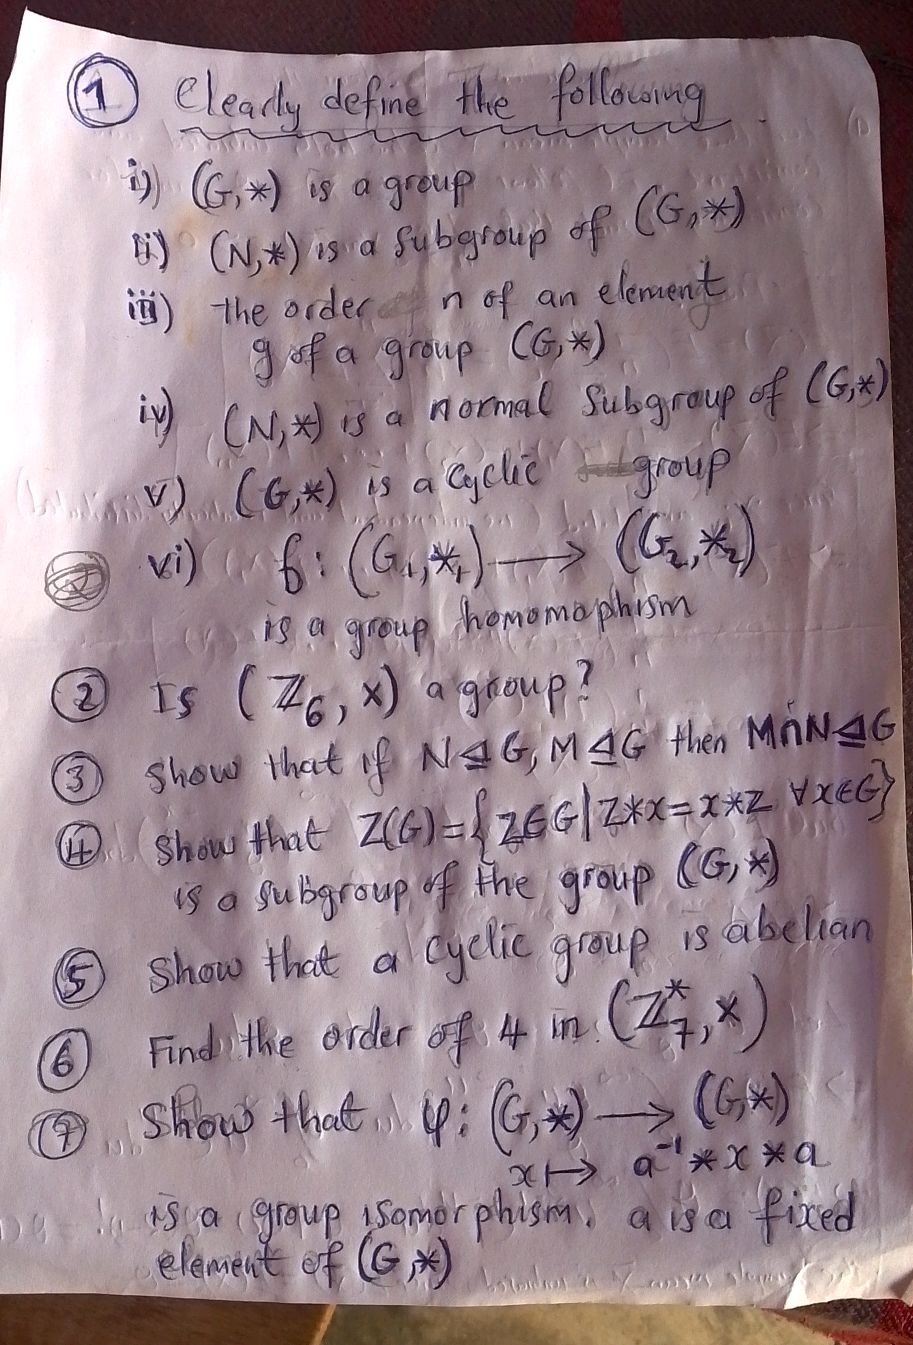 ① Clearly define the following.
i) (G,*) is a group
ii) (N,*) is a subgroup of (G,*)
iii) the order n of an element
g of a group (G,*)
iv) (N,*) is a normal subgroup of (G,*)
v) (G,*) is a cyclic group
vi) f: (G₁,*₁) ⟶ (G₂,*₂)
is a group homomophism
② Is (ℤ₆, x) a group?
③ Show that if N⊴G, M⊴G then M∩N⊴G
④ Show that Z(G)={Z∈G|Z*x=x*Z ∀x∈G}
is a subgroup of the group (G,*)
⑤ Show that a cyclic group is abelian
⑥ Find the order of 4 in (ℤ₇*, x)
⑦ Show that φ: (G,*) ⟶ (G,*)
x ↦ a⁻¹*x*a
is a group isomorphism. a is a fixed
element of (G,*)